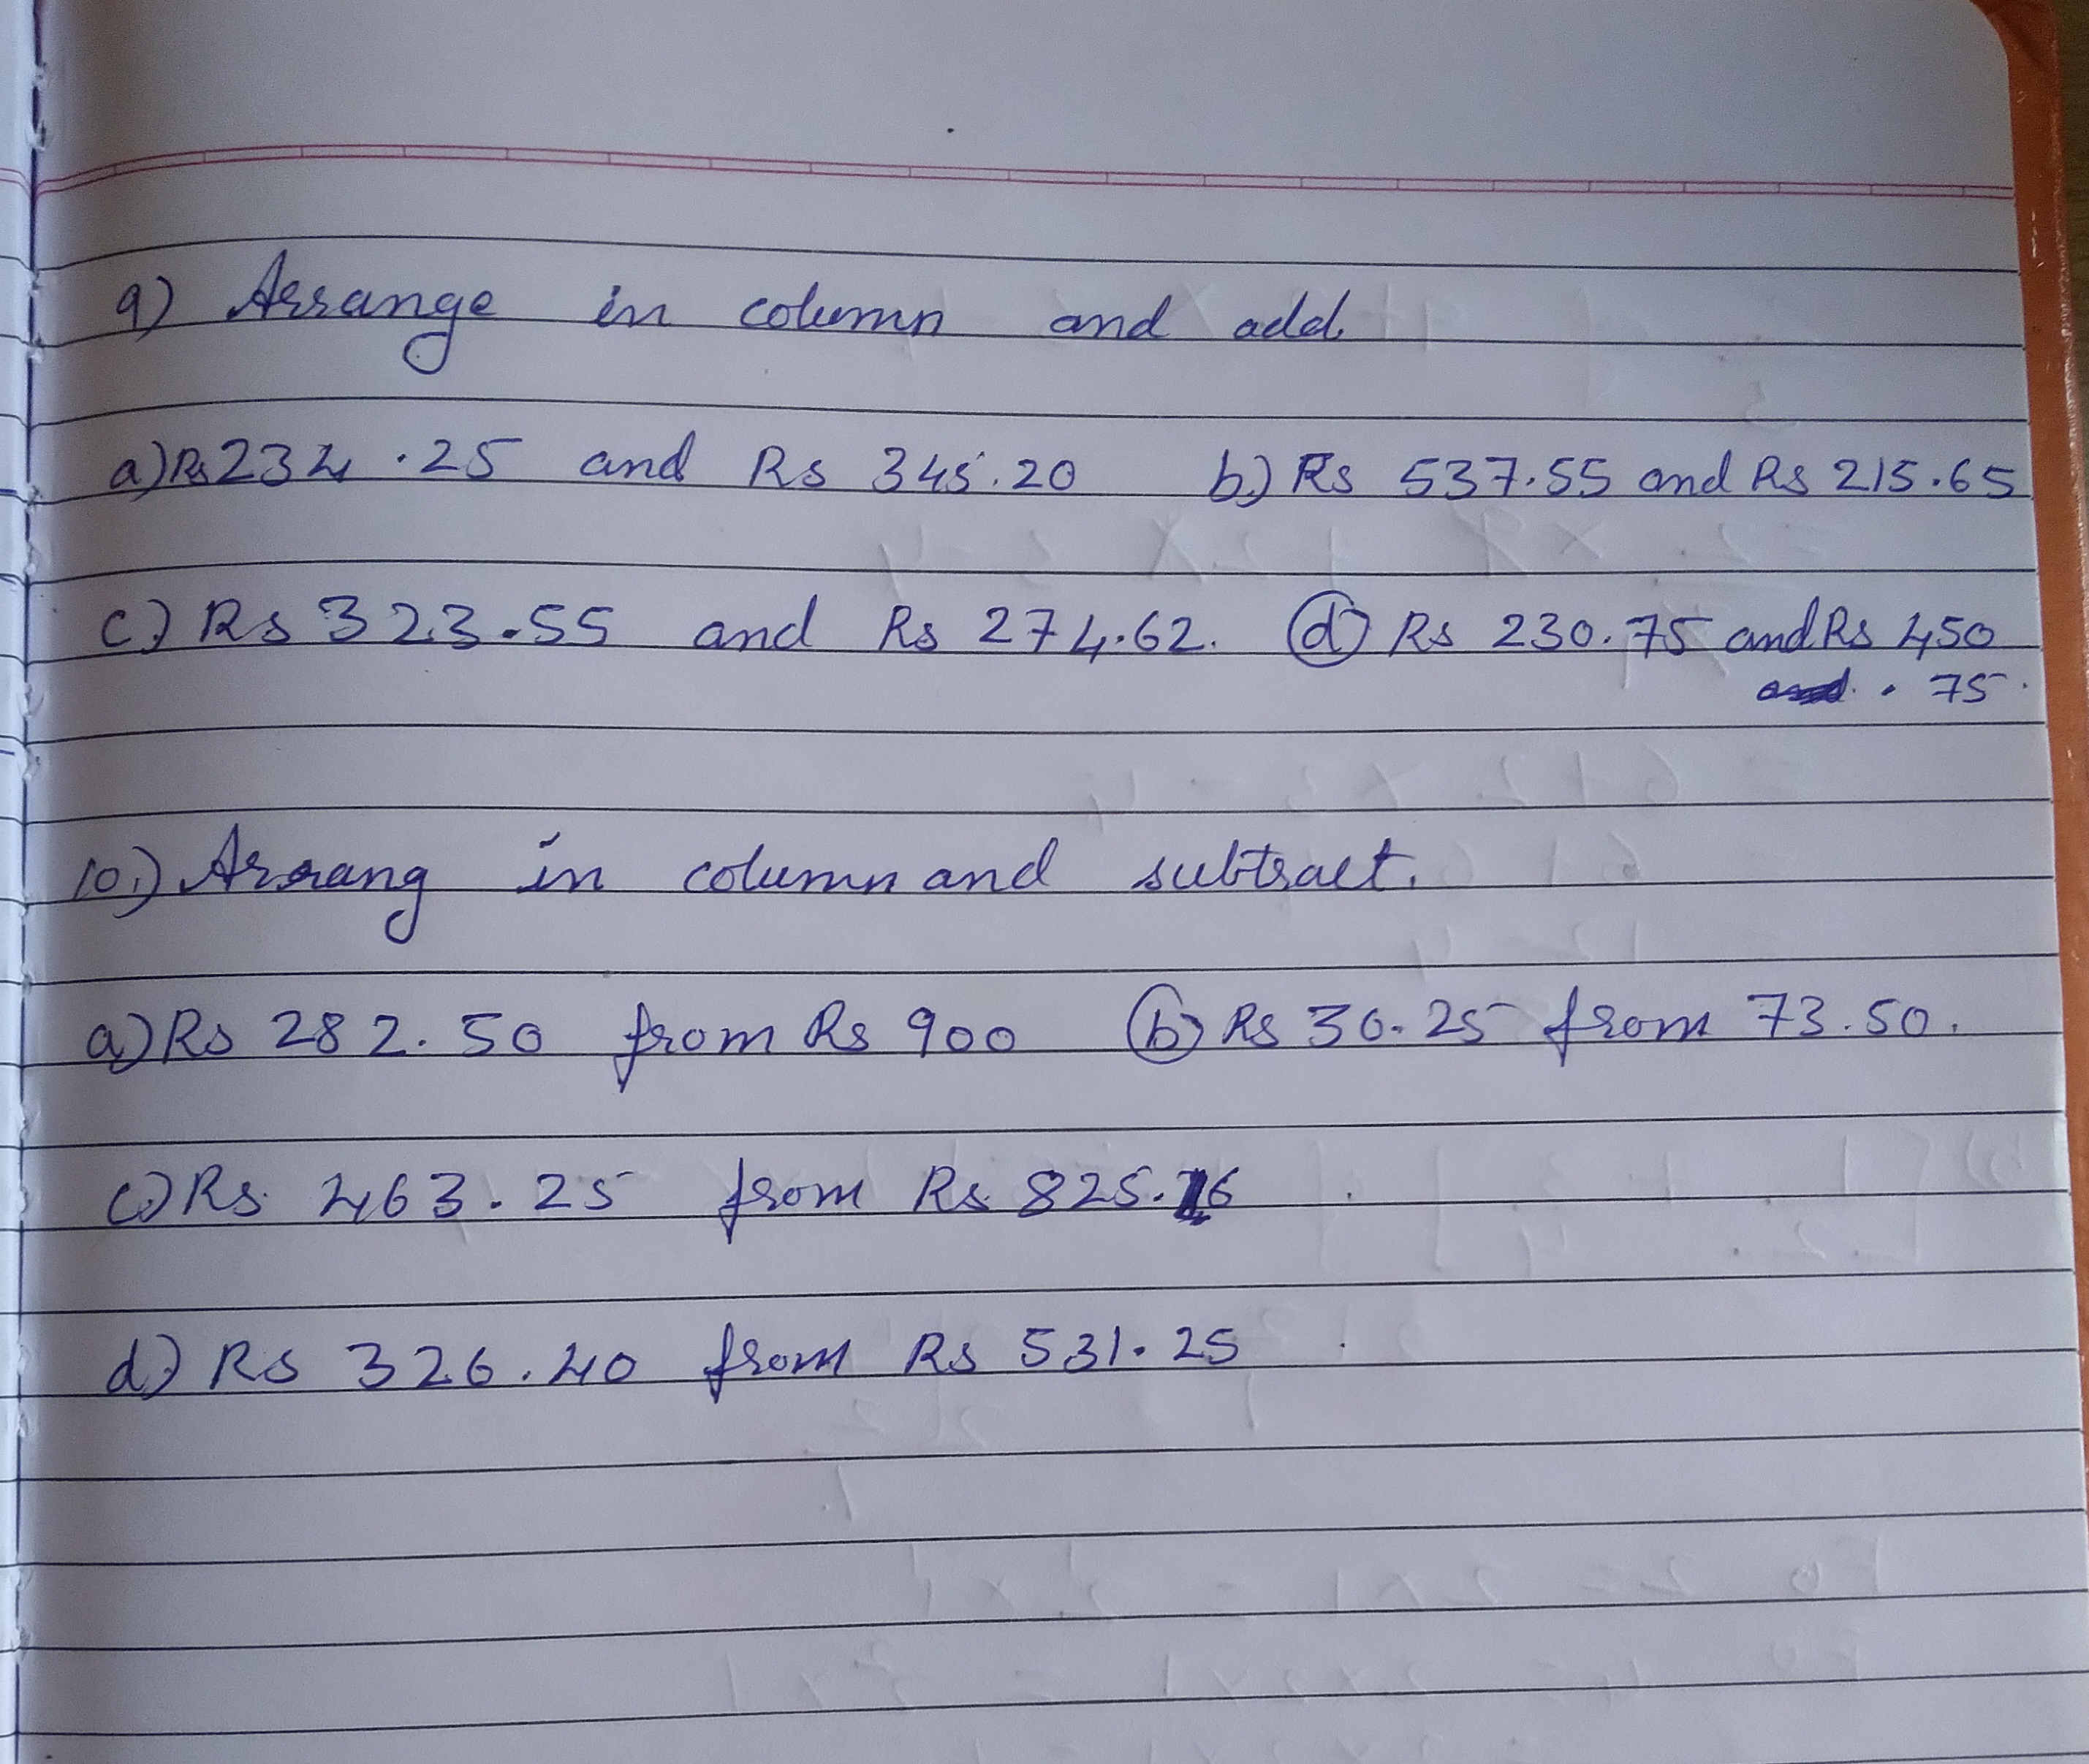 9) Arrange in column and add.
a) Rs 234.25 and Rs 345.20 b) Rs 537.55 and Rs 215.65
c) Rs 323.55 and Rs 274.62. (d) Rs 230.75 and Rs 450
.75.
10.) Arrang in column and subtract.
a) Rs 282.50 from Rs 900 (b) Rs 30.25 from 73.50.
c) Rs. 463.25 from Rs. 825.16
d) Rs 326.40 from Rs 531.25